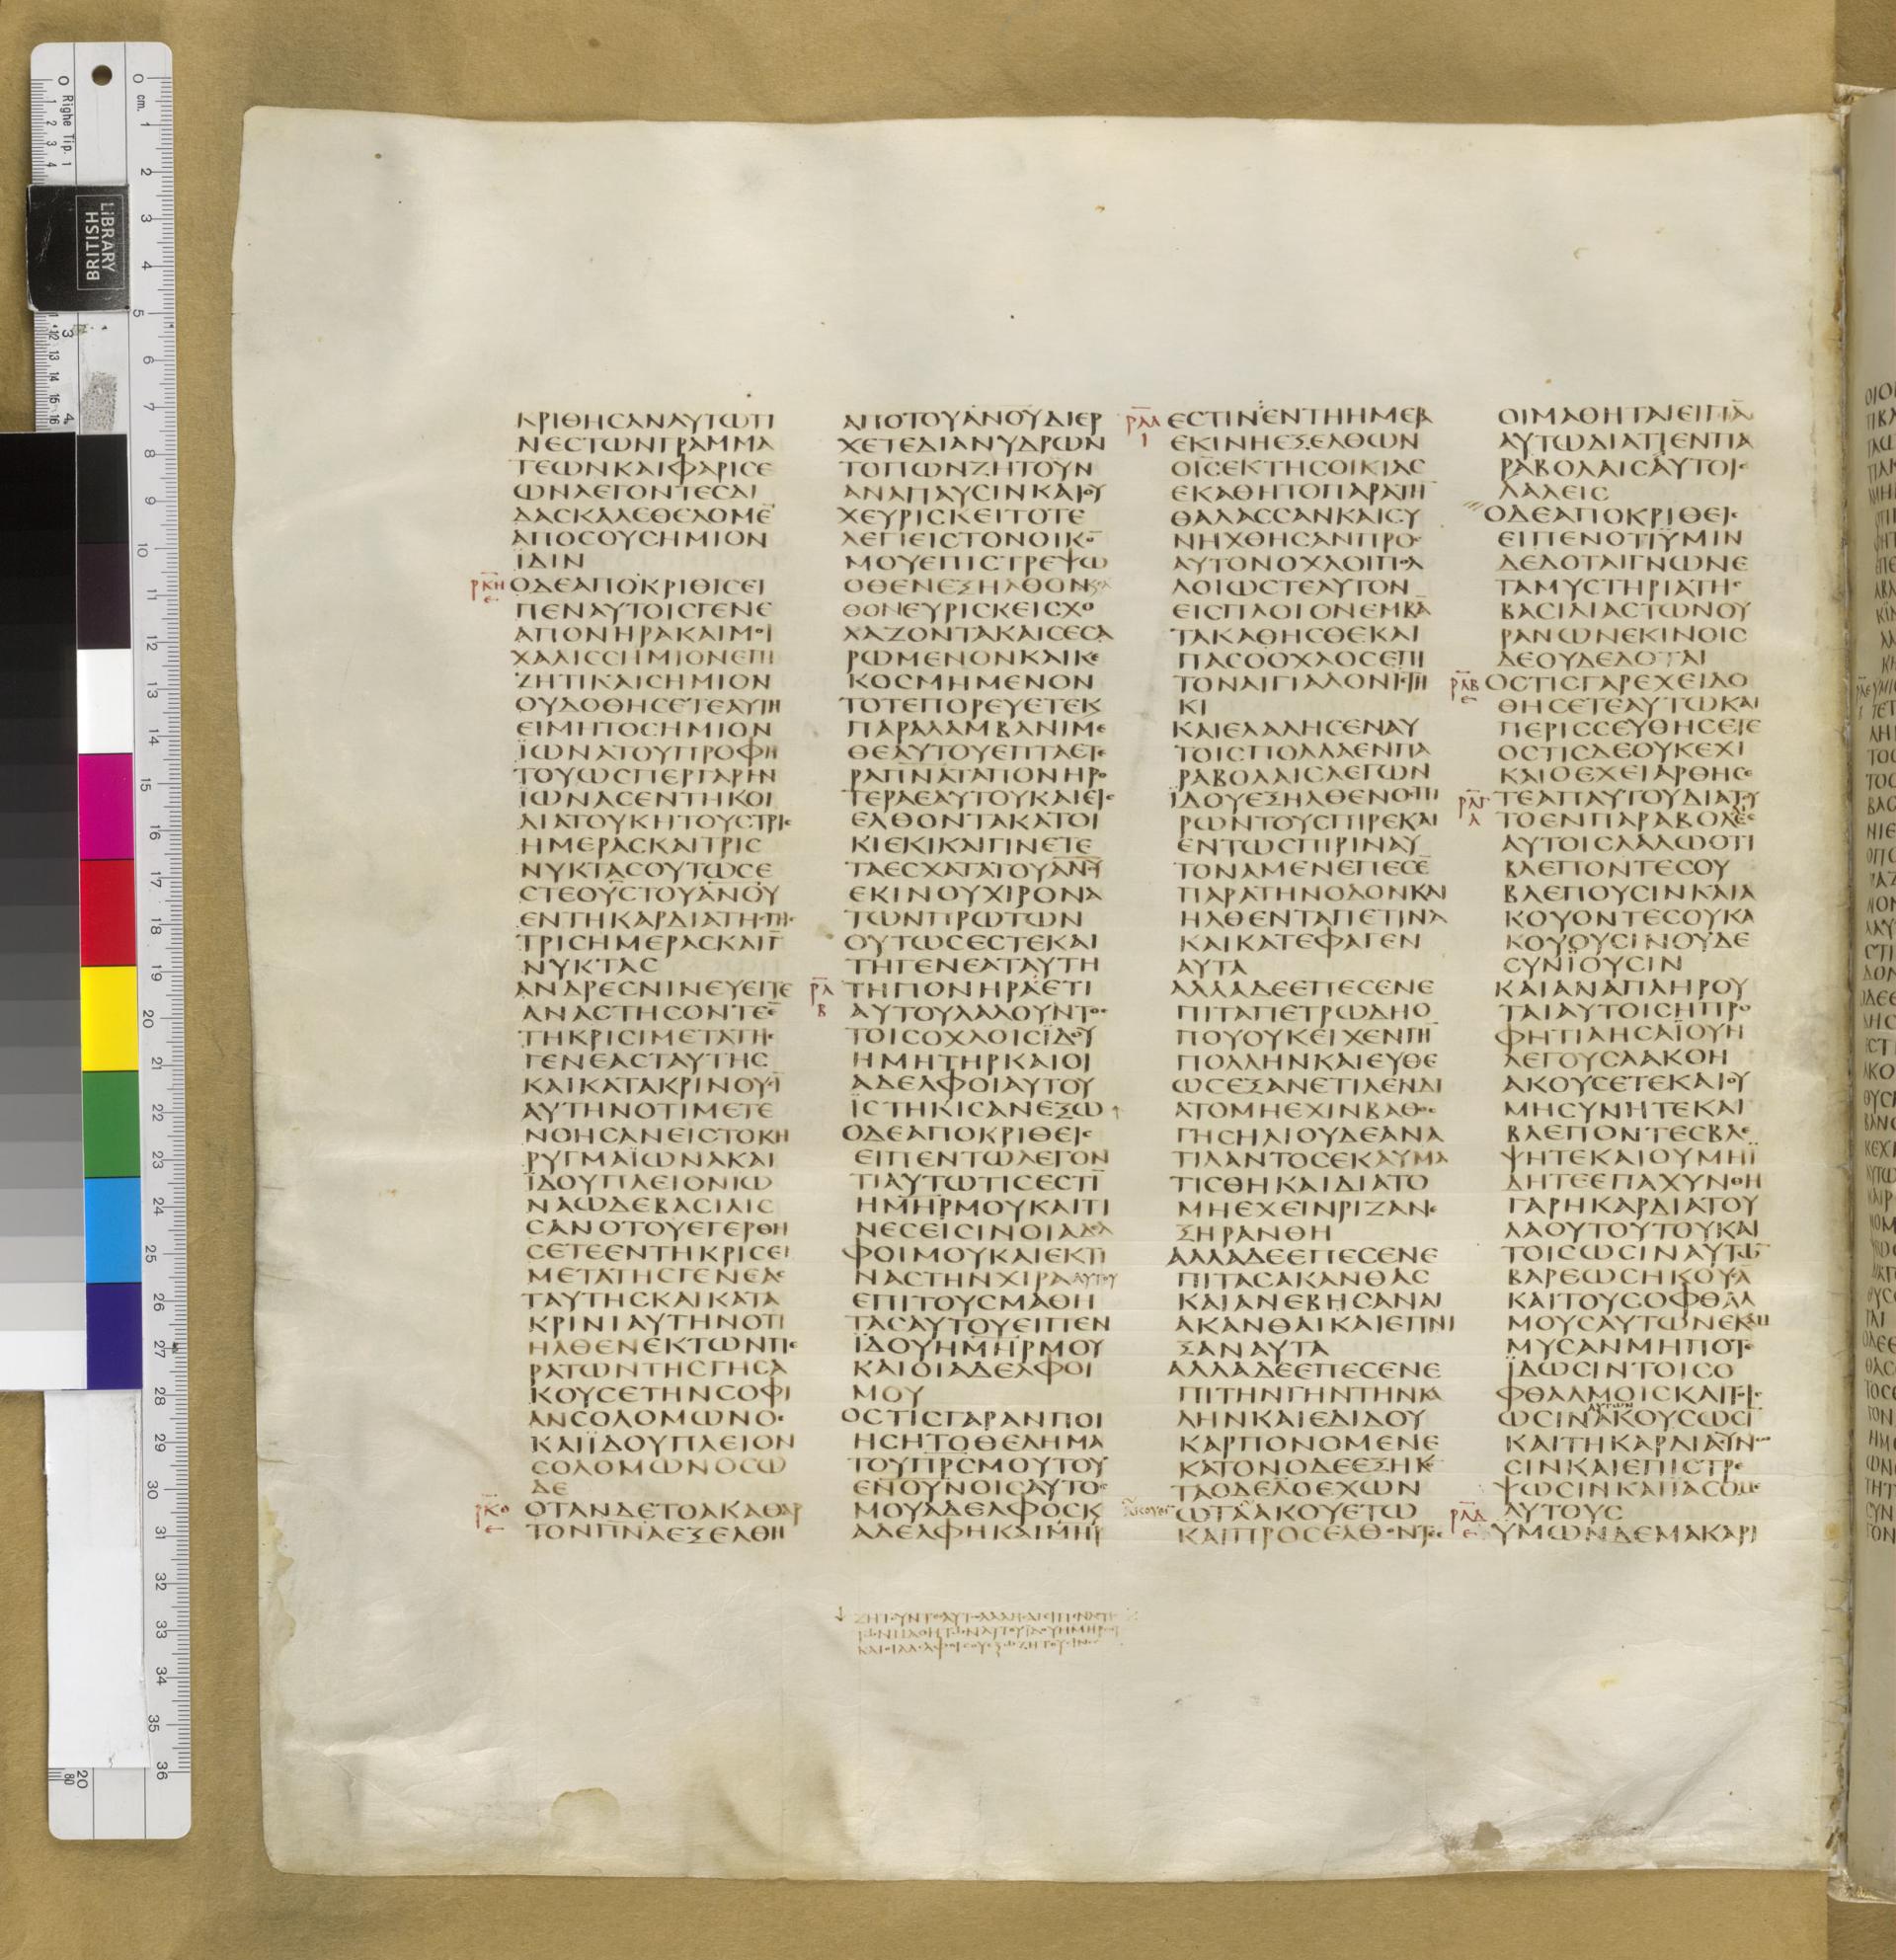 ΚΡΙΘΗϹΑΝΑΥΤΩΤΙ
ΝΕϹΤΩΝΓΡΑΜΜΑ
ΤΕΩΝΚΑΙΦΑΡΙϹΕ
ΩΝΛΕΓΟΝΤΕϹΔΙ
ΔΑϹΚΑΛΕΘΕΛΟΜΕ̅
ΑΠΟϹΟΥϹΗΜΙΟΝ
ΪΔΙΝ
ΡΚΗ ΟΔΕΑΠΟΚΡΙΘΙϹΕΙ
ΠΕΝΑΥΤΟΙϹΓΕΝΕ
ΑΠΟΝΗΡΑΚΑΙΜΟΙ
ΧΑΛΙϹϹΗΜΙΟΝΕΠΙ
ΖΗΤΙΚΑΙϹΗΜΙΟΝ
ΟΥΔΟΘΗϹΕΤΕΑΥΤΗ
ΕΙΜΗΤΟϹΗΜΙΟΝ
ΪΩΝΑΤΟΥΠΡΟΦΗ
ΤΟΥΩϹΠΕΡΓΑΡΗΝ
ΪΩΝΑϹΕΝΤΗΚΟΙ
ΛΙΑΤΟΥΚΗΤΟΥϹΤΡΙϹ
ΗΜΕΡΑϹΚΑΙΤΡΙϹ
ΝΥΚΤΑϹΟΥΤΩϹΕ
ϹΤΕΟΥ̅Ϲ̅ΤΟΥΑ̅Ν̅Ο̅Υ̅
ΕΝΤΗΚΑΡΔΙΑΤΗϹΓΗϹ
ΤΡΙϹΗΜΕΡΑϹΚΑΙΓ̅
ΝΥΚΤΑϹ
ΑΝΔΡΕϹΝΙΝΕΥΕΙΤΕ
ΑΝΑϹΤΗϹΟΝΤΕ̅Ε̅
ΤΗΚΡΙϹΙΜΕΤΑΤΗϹ
ΓΕΝΕΑϹΤΑΥΤΗϹ
ΚΑΙΚΑΤΑΚΡΙΝΟΥϹΙ̅
ΑΥΤΗΝΟΤΙΜΕΤΕ
ΝΟΗϹΑΝΕΙϹΤΟΚΗ
ΡΥΓΜΑΪΩΝΑΚΑΙ
ΪΔΟΥΠΛΕΙΟΝΙΩ
ΝΑΩΔΕΒΑϹΙΛΙϹ
ϹΑΝΟΤΟΥΕΓΕΡΘΗ
ϹΕΤΕΕΝΤΗΚΡΙϹΕΙ
ΜΕΤΑΤΗϹΓΕΝΕΑϹ
ΤΑΥΤΗϹΚΑΙΚΑΤΑ
ΚΡΙΝΙΑΥΤΗΝΟΤΙ
ΗΛΘΕΝΕΚΤΩΝΠΕ
ΡΑΤΩΝΤΗϹΓΗϹΑ
ΚΟΥϹΕΤΗΝϹΟΦΙ
ΑΝϹΟΛΟΜΩΝΟϹ
ΚΑΙΪΔΟΥΠΛΕΙΟΝ
ϹΟΛΟΜΩΝΟϹΩ
ΔΕ
ΡΚΘ ΟΤΑΝΔΕΤΟΑΚΑΘΑΡ
ΤΟΝΠ̅Ν̅Α̅ΕΞΕΛΘΗ
ΑΠΟΤΟΥΑ̅Ν̅Ο̅Υ̅ΔΙΕΡ
ΧΕΤΕΔΙΑΝΥΔΡΩΝ
ΤΟΠΩΝΖΗΤΟΥΝ
ΑΝΑΠΑΥϹΙΝΚΑΙΟΥ
ΧΕΥΡΙϹΚΕΙΤΟΤΕ
ΛΕΓΙΕΙϹΤΟΝΟΙΚΟ̅
ΜΟΥΕΠΙϹΤΡΕΨΩ
ΟΘΕΝΕΞΗΛΘΟΝΚΑΙ
ΘΟΝΕΥΡΙϹΚΕΙϹΧΟ
ΛΑΖΟΝΤΑΚΑΙϹΕϹΑ
ΡΩΜΕΝΟΝΚΑΙΚΕ
ΚΟϹΜΗΜΕΝΟΝ
ΤΟΤΕΠΟΡΕΥΕΤΕΚ
ΠΑΡΑΛΑΜΒΑΝΙΜΕ
ΘΕΑΥΤΟΥΕΠΤΑΕΤΕ
ΡΑΠ̅Ν̅Α̅ΤΑΠΟΝΗΡΟ
ΤΕΡΑΕΑΥΤΟΥΚΑΙΕΙϹ
ΕΛΘΟΝΤΑΚΑΤΟΙ
ΚΙΕΚΙΚΑΙΓΙΝΕΤΕ
ΤΑΕϹΧΑΤΑΤΟΥΑ̅Ν̅Υ̅
ΕΚΙΝΟΥΧΙΡΟΝΑ
ΤΩΝΠΡΩΤΩΝ
ΟΥΤΩϹΕϹΤΕΚΑΙ
ΤΗΓΕΝΕΑΤΑΥΤΗ
ΡΛ ΤΗΠΟΝΗΡΑΕΤΙ
Β ΑΥΤΟΥΛΑΛΟΥΝΤΟϹ
ΤΟΙϹΟΧΛΟΙϹΪΔΟΥ
ΗΜΗΤΗΡΚΑΙΟΙ
ΑΔΕΛΦΟΙΑΥΤΟΥ
ΪϹΤΗΚΙϹΑΝΕΞΩ↑
ΟΔΕΑΠΟΚΡΙΘΕΙϹ
ΕΙΠΕΝΤΩΛΕΓΟΝ
ΤΙΑΥΤΩΤΙϹΕϹΤΙ̅
ΗΜ̅Η̅Ρ̅ΜΟΥΚΑΙΤΙ
ΝΕϹΕΙϹΙΝΟΙΑΔΕΛ
ΦΟΙΜΟΥΚΑΙΕΚΤΙ
ΝΑϹΤΗΝΧΙΡΑΑΥΤΟΥ
ΕΠΙΤΟΥϹΜΑΘΗ
ΤΑϹΑΥΤΟΥΕΙΠΕΝ
ΪΔΟΥΗΜ̅Η̅Ρ̅ΜΟΥ
ΚΑΙΟΙΑΔΕΛΦΟΙ
ΜΟΥ
ΟϹΤΙϹΓΑΡΑΝΠΟΙ
ΗϹΗΤΟΘΕΛΗΜΑ
ΤΟΥΠ̅Ρ̅Ϲ̅ΜΟΥΤΟΥ
ΕΝΟΥ̅Ν̅ΟΙϹΑΥΤΟϹ
ΜΟΥΑΔΕΛΦΟϹΚ
ΑΔΕΛΦΗΚΑΙΜ̅Η̅Ρ̅
ΡΛΑ ΕϹΤΙΝΕΝΤΗΗΜΕΡΑ
Ι ΕΚΙΝΗΕΞΕΛΘΩΝ
ΟΙ̅Ϲ̅ΕΚΤΗϹΟΙΚΙΑϹ
ΕΚΑΘΗΤΟΠΑΡΑΤΗ̅
ΘΑΛΑϹϹΑΝΚΑΙϹΥ
ΝΗΧΘΗϹΑΝΠΡΟϹ
ΑΥΤΟΝΟΧΛΟΙΠΟΛ
ΛΟΙΩϹΤΕΑΥΤΟΝ
ΕΙϹΠΛΟΙΟΝΕΜΒΑ̅
ΤΑΚΑΘΗϹΘΕΚΑΙ
ΠΑϹΟΟΧΛΟϹΕΠΙ
ΤΟΝΑΙΓΙΑΛΟΝΙϹΤΗ
ΚΙ
ΚΑΙΕΛΑΛΗϹΕΝΑΥ
ΤΟΙϹΠΟΛΛΑΕΝΠΑ
ΡΑΒΟΛΑΙϹΛΕΓΩΝ
ΪΔΟΥΕΞΗΛΘΕΝΟϹΠΙ
ΡΩΝΤΟΥϹΠΙΡΕΚΑΙ
ΕΝΤΩϹΠΙΡΙΝΑΥ
ΤΟΝΑΜΕΝΕΠΕϹΕ̅
ΠΑΡΑΤΗΝΟΔΟΝΚΑΙ
ΗΛΘΕΝΤΑΠΕΤΙΝΑ
ΚΑΙΚΑΤΕΦΑΓΕΝ
ΑΥΤΑ
ΑΛΛΑΔΕΕΠΕϹΕΝΕ
ΠΙΤΑΠΕΤΡΩΔΗΟ
ΠΟΥΟΥΚΕΙΧΕΝΓΗ̅
ΠΟΛΛΗΝΚΑΙΕΥΘΕ
ΩϹΕΞΑΝΕΤΙΛΕΝΔΙ
ΑΤΟΜΗΕΧΙΝΒΑΘΟϹ
ΓΗϹΗΛΙΟΥΔΕΑΝΑ
ΤΙΛΑΝΤΟϹΕΚΑΥΜΑ
ΤΙϹΘΗΚΑΙΔΙΑΤΟ
ΜΗΕΧΕΙΝΡΙΖΑΝΕ
ΞΗΡΑΝΘΗ
ΑΛΛΑΔΕΕΠΕϹΕΝΕ
ΠΙΤΑϹΑΚΑΝΘΑϹ
ΚΑΙΑΝΕΒΗϹΑΝΑΙ
ΑΚΑΝΘΑΙΚΑΙΕΠΝΙ
ΞΑΝΑΥΤΑ
ΑΛΛΑΔΕΕΠΕϹΕΝΕ
ΠΙΤΗΝΓΗΝΤΗΝΚΑ
ΛΗΝΚΑΙΕΔΙΔΟΥ
ΚΑΡΠΟΝΟΜΕΝΕ
ΚΑΤΟΝΟΔΕΕΞΗΚ
ΤΑΟΔΕΛ̅ΟΕΧΩΝ
ΩΤΑΑΚΟΥΕΤΩ
ΚΑΙΠΡΟϹΕΛΘΟΝΤΕϹ
ΟΙΜΑΘΗΤΑΙΕΙΠΑ̅
ΑΥΤΩΔΙΑΤΙΕΝΠΑ
ΡΑΒΟΛΑΙϹΑΥΤΟΙϹ
ΛΑΛΕΙϹ
ΟΔΕΑΠΟΚΡΙΘΕΙϹ
ΕΙΠΕΝΟΤΙΫΜΙΝ
ΔΕΔΟΤΑΙΓΝΩΝΕ
ΤΑΜΥϹΤΗΡΙΑΤΗϹ
ΒΑϹΙΛΙΑϹΤΩΝΟΥ
ΡΑΝΩΝΕΚΙΝΟΙϹ
ΔΕΟΥΔΕΔΟΤΑΙ
ΡΛΒ ΟϹΤΙϹΓΑΡΕΧΕΙΔΟ
ΘΗϹΕΤΕΑΥΤΩΚΑΙ
ΠΕΡΙϹϹΕΥΘΗϹΕΤΕ
ΟϹΤΙϹΔΕΟΥΚΕΧΙ
ΚΑΙΟΕΧΕΙΑΡΘΗϹΕ
ΡΛΓ ΤΕΑΠΑΥΤΟΥΔΙΑΤΟΥ
Α ΤΟΕΝΠΑΡΑΒΟΛΕϹ
ΑΥΤΟΙϹΛΑΛΩΟΤΙ
ΒΛΕΠΟΝΤΕϹΟΥ
ΒΛΕΠΟΥϹΙΝΚΑΙΑ
ΚΟΥΟΝΤΕϹΟΥΚΑ
ΚΟΥΟΥϹΙΝΟΥΔΕ
ϹΥΝΪΟΥϹΙΝ
ΚΑΙΑΝΑΠΛΗΡΟΥ
ΤΑΙΑΥΤΟΙϹΗΠΡΟ
ΦΗΤΙΑΗϹΑΪΟΥΗ
ΛΕΓΟΥϹΑΑΚΟΗ
ΑΚΟΥϹΕΤΕΚΑΙΟΥ
ΜΗϹΥΝΗΤΕΚΑΙ
ΒΛΕΠΟΝΤΕϹΒΛΕ
ΨΗΤΕΚΑΙΟΥΜΗΪ
ΔΗΤΕΕΠΑΧΥΝΘΗ
ΓΑΡΗΚΑΡΔΙΑΤΟΥ
ΛΑΟΥΤΟΥΤΟΥΚΑΙ
ΤΟΙϹΩϹΙΝΑΥΤΩ̅
ΒΑΡΕΩϹΗΚΟΥϹΑ̅
ΚΑΙΤΟΥϹΟΦΘΑΛ
ΜΟΥϹΑΥΤΩΝΕΚΑΜ
ΜΥϹΑΝΜΗΠΟΤΕ
ΪΔΩϹΙΝΤΟΙϹΟ
ΦΘΑΛΜΟΙϹΚΑΙΤΟΙϹ
ΑΥΤΩΝ
ΩϹΙΝΑΚΟΥϹΩϹΙ̅
ΚΑΙΤΗΚΑΡΔΙΑϹΥΝΩ
ϹΙΝΚΑΙΕΠΙϹΤΡΕ
ΨΩϹΙΝΚΑΙΪΑϹΟΜΕ
ΡΛΔ ΑΥΤΟΥϹ
Ε ΥΜΩΝΔΕΜΑΚΑΡΙ
↓ ΖΗΤΟΥΝΤΕϹΑΥΤΩΛΑΛΗϹΑΙΕΙΠΕΝΔΕΤΙϹ
ΤΩΝΜΑΘΗΤΩΝΑΥΤΟΥΪΔΟΥΗΜΗΡϹΟΥ
ΚΑΙΟΙΑΔΕΛΦΟΙϹΟΥΕΞΩΖΗΤΟΥϹΙΝϹΕ
BRITISH
LIBRARY
Righe Tip. 1
cm.